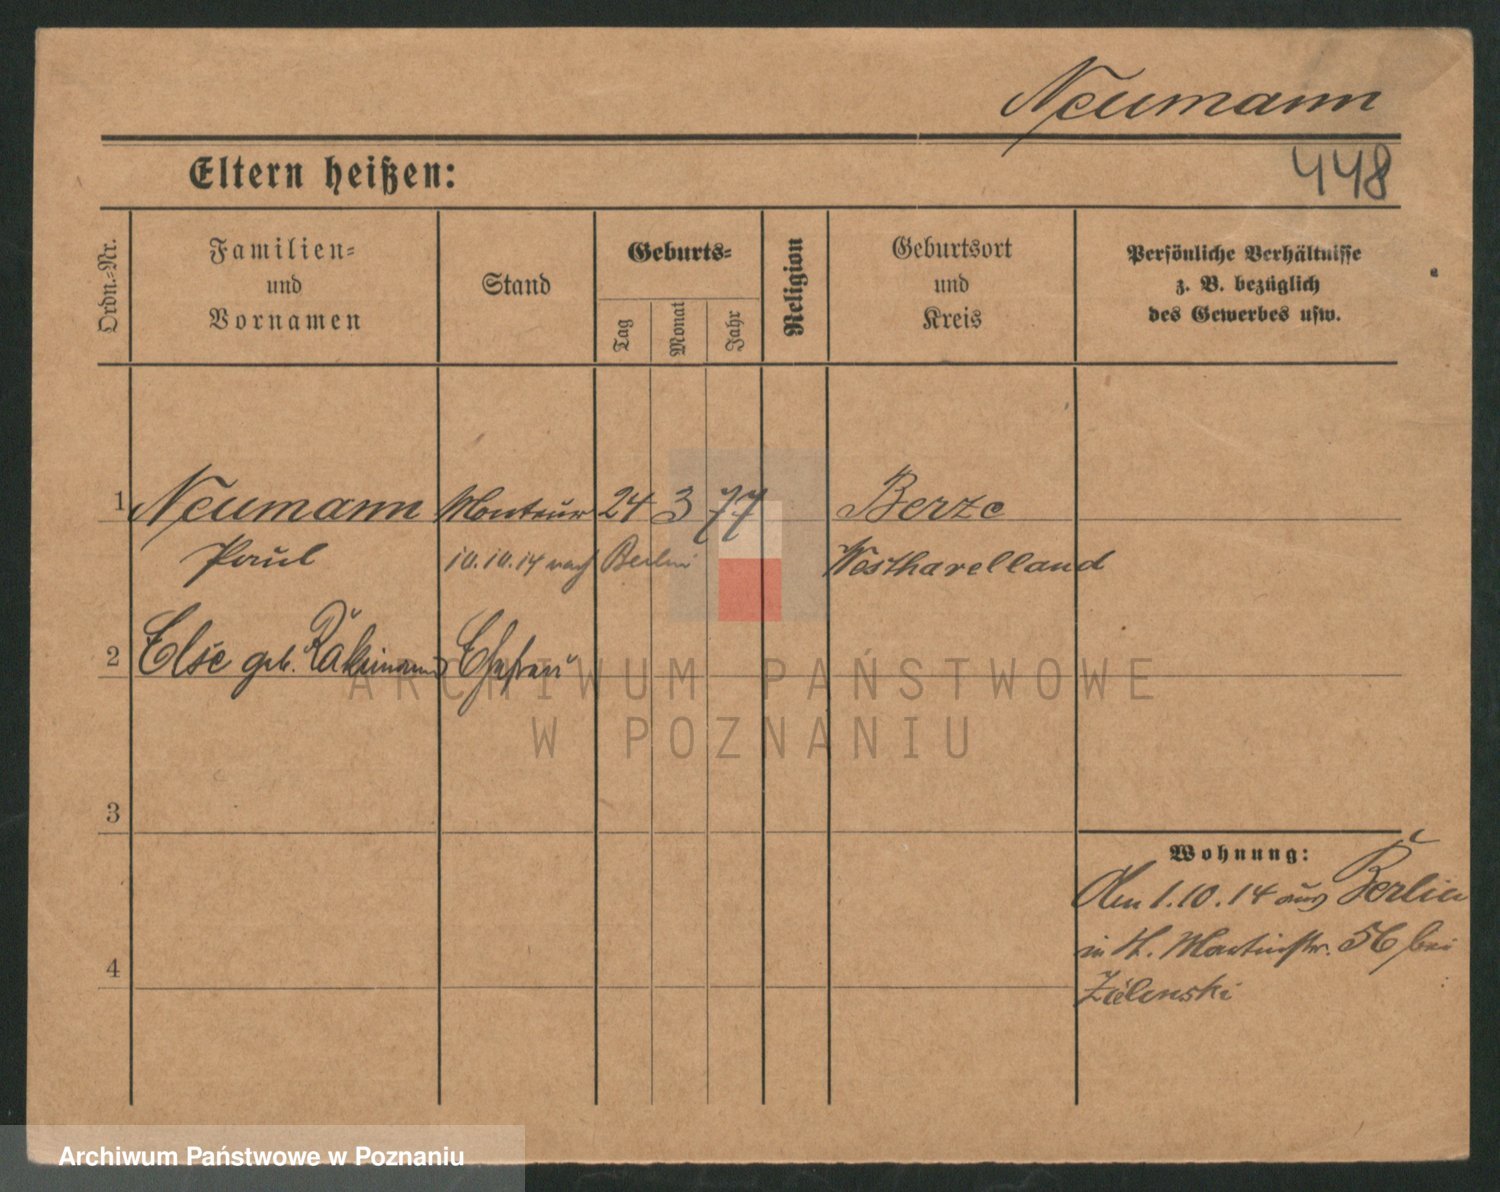 Neumann
Eltern heißen:
448
Ordn.-Nr.
Familien-
und
Vornamen
Stand
Geburts-
Tag
Monat
Jahr
Religion
Geburtsort
und
Kreis
Persönliche Verhältnisse
z. B. bezüglich
des Gewerbes usw.
1 Neumann Monteur 24 3 77 Berze
Paul 10.10.14 nach Berlin Westhavelland
2 Else geb. Ehefrau
ARCHIWUM PAŃSTWOWE
W POZNANIU
3
Wohnung:
Am 1.10.14 aus Berlin
in H. Martinstr. 56 bei
4
Zielenski
Archiwum Państwowe w Poznaniu